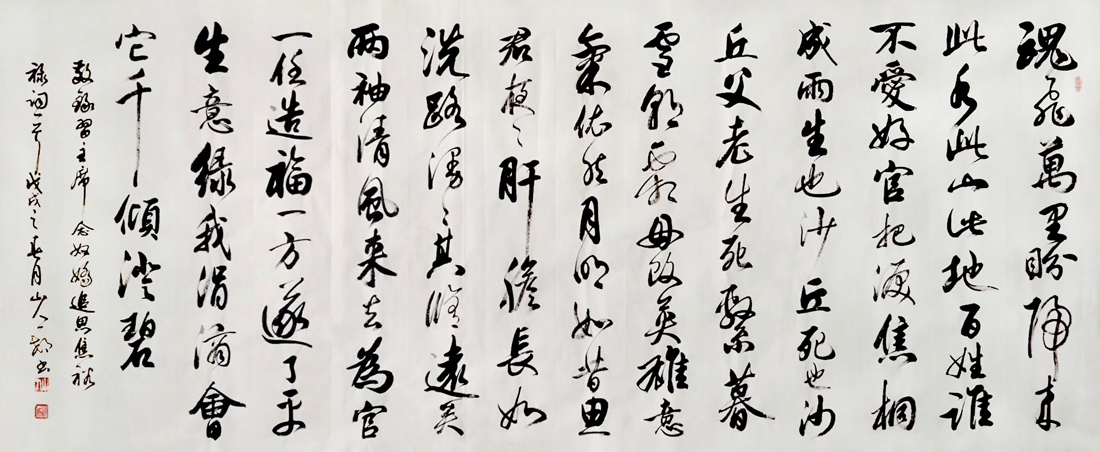 魂飛萬里盼歸来
此水此山此地百姓誰
不愛好官把淚焦桐
成雨生也沙丘死也沙
丘父老生死繫暮
雪朝霜毋改英雄意
氣依然月明如昔思
君夜〻肝膽長如
洗路漫〻其修遠矣
两袖清風来去為官
一任造福一方遂了平
生意緑我涓滴會
它千傾澄碧
敬錄習主席念奴嬌追思焦裕
禄词一首 戊戌之春月山人一书